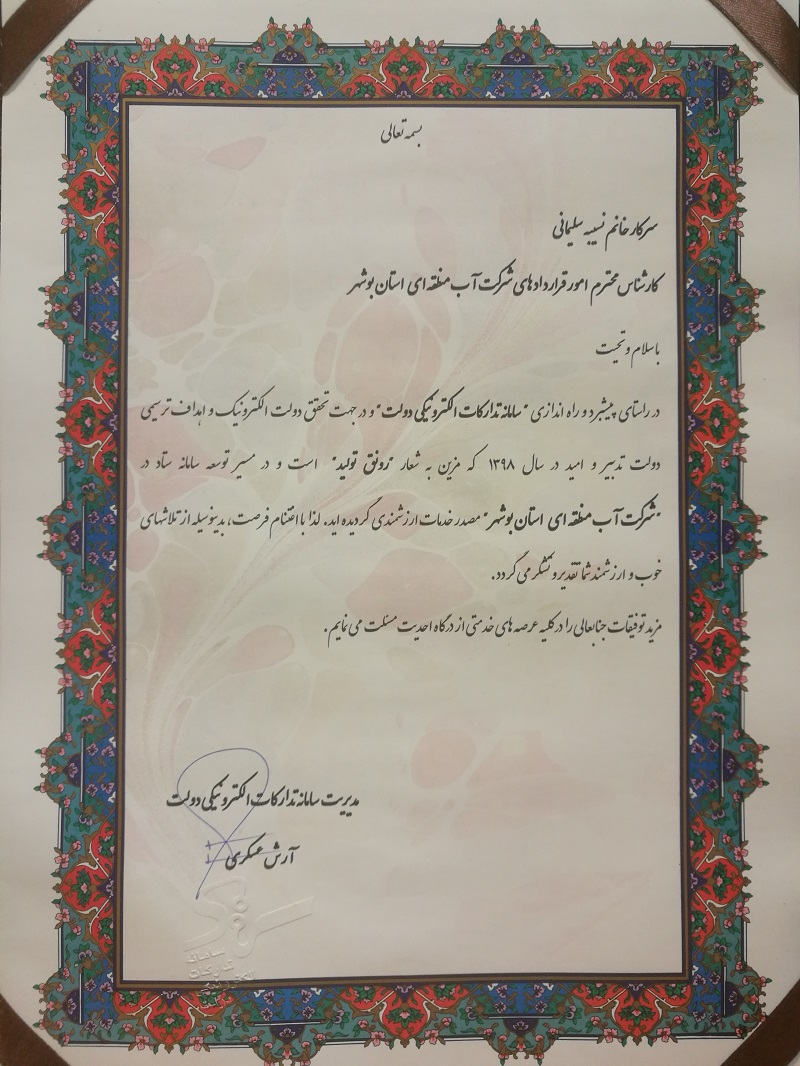 بسمه تعالی
سرکار خانم نسیبه سلیمانی
کارشناس محترم امور قراردادهای شرکت آب منطقه ای استان بوشهر
باسلام و تحیت
در راستای پیشبرد و راه اندازی "سامانه تدارکات الکترونیکی دولت" و در جهت تحقق دولت الکترونیک و اهداف ترسیمی
دولت تدبیر و امید در سال ۱۳۹۸ که مزین به شعار "رونق تولید" است و در مسیر توسعه سامانه ستاد در
"شرکت آب منطقه ای استان بوشهر" مصدر خدمات ارزشمندی گردیده اید. لذا با اغتنام فرصت، بدینوسیله از تلاشهای
خوب و ارزشمند شما تقدیر و تشکر می گردد.
مزید توفیقات جنابعالی را در کلیه عرصه های خدمتی از درگاه احدیت مسئلت می نمایم.
مدیریت سامانه تدارکات الکترونیکی دولت
آرش عسکری
سامانه
تدارکات